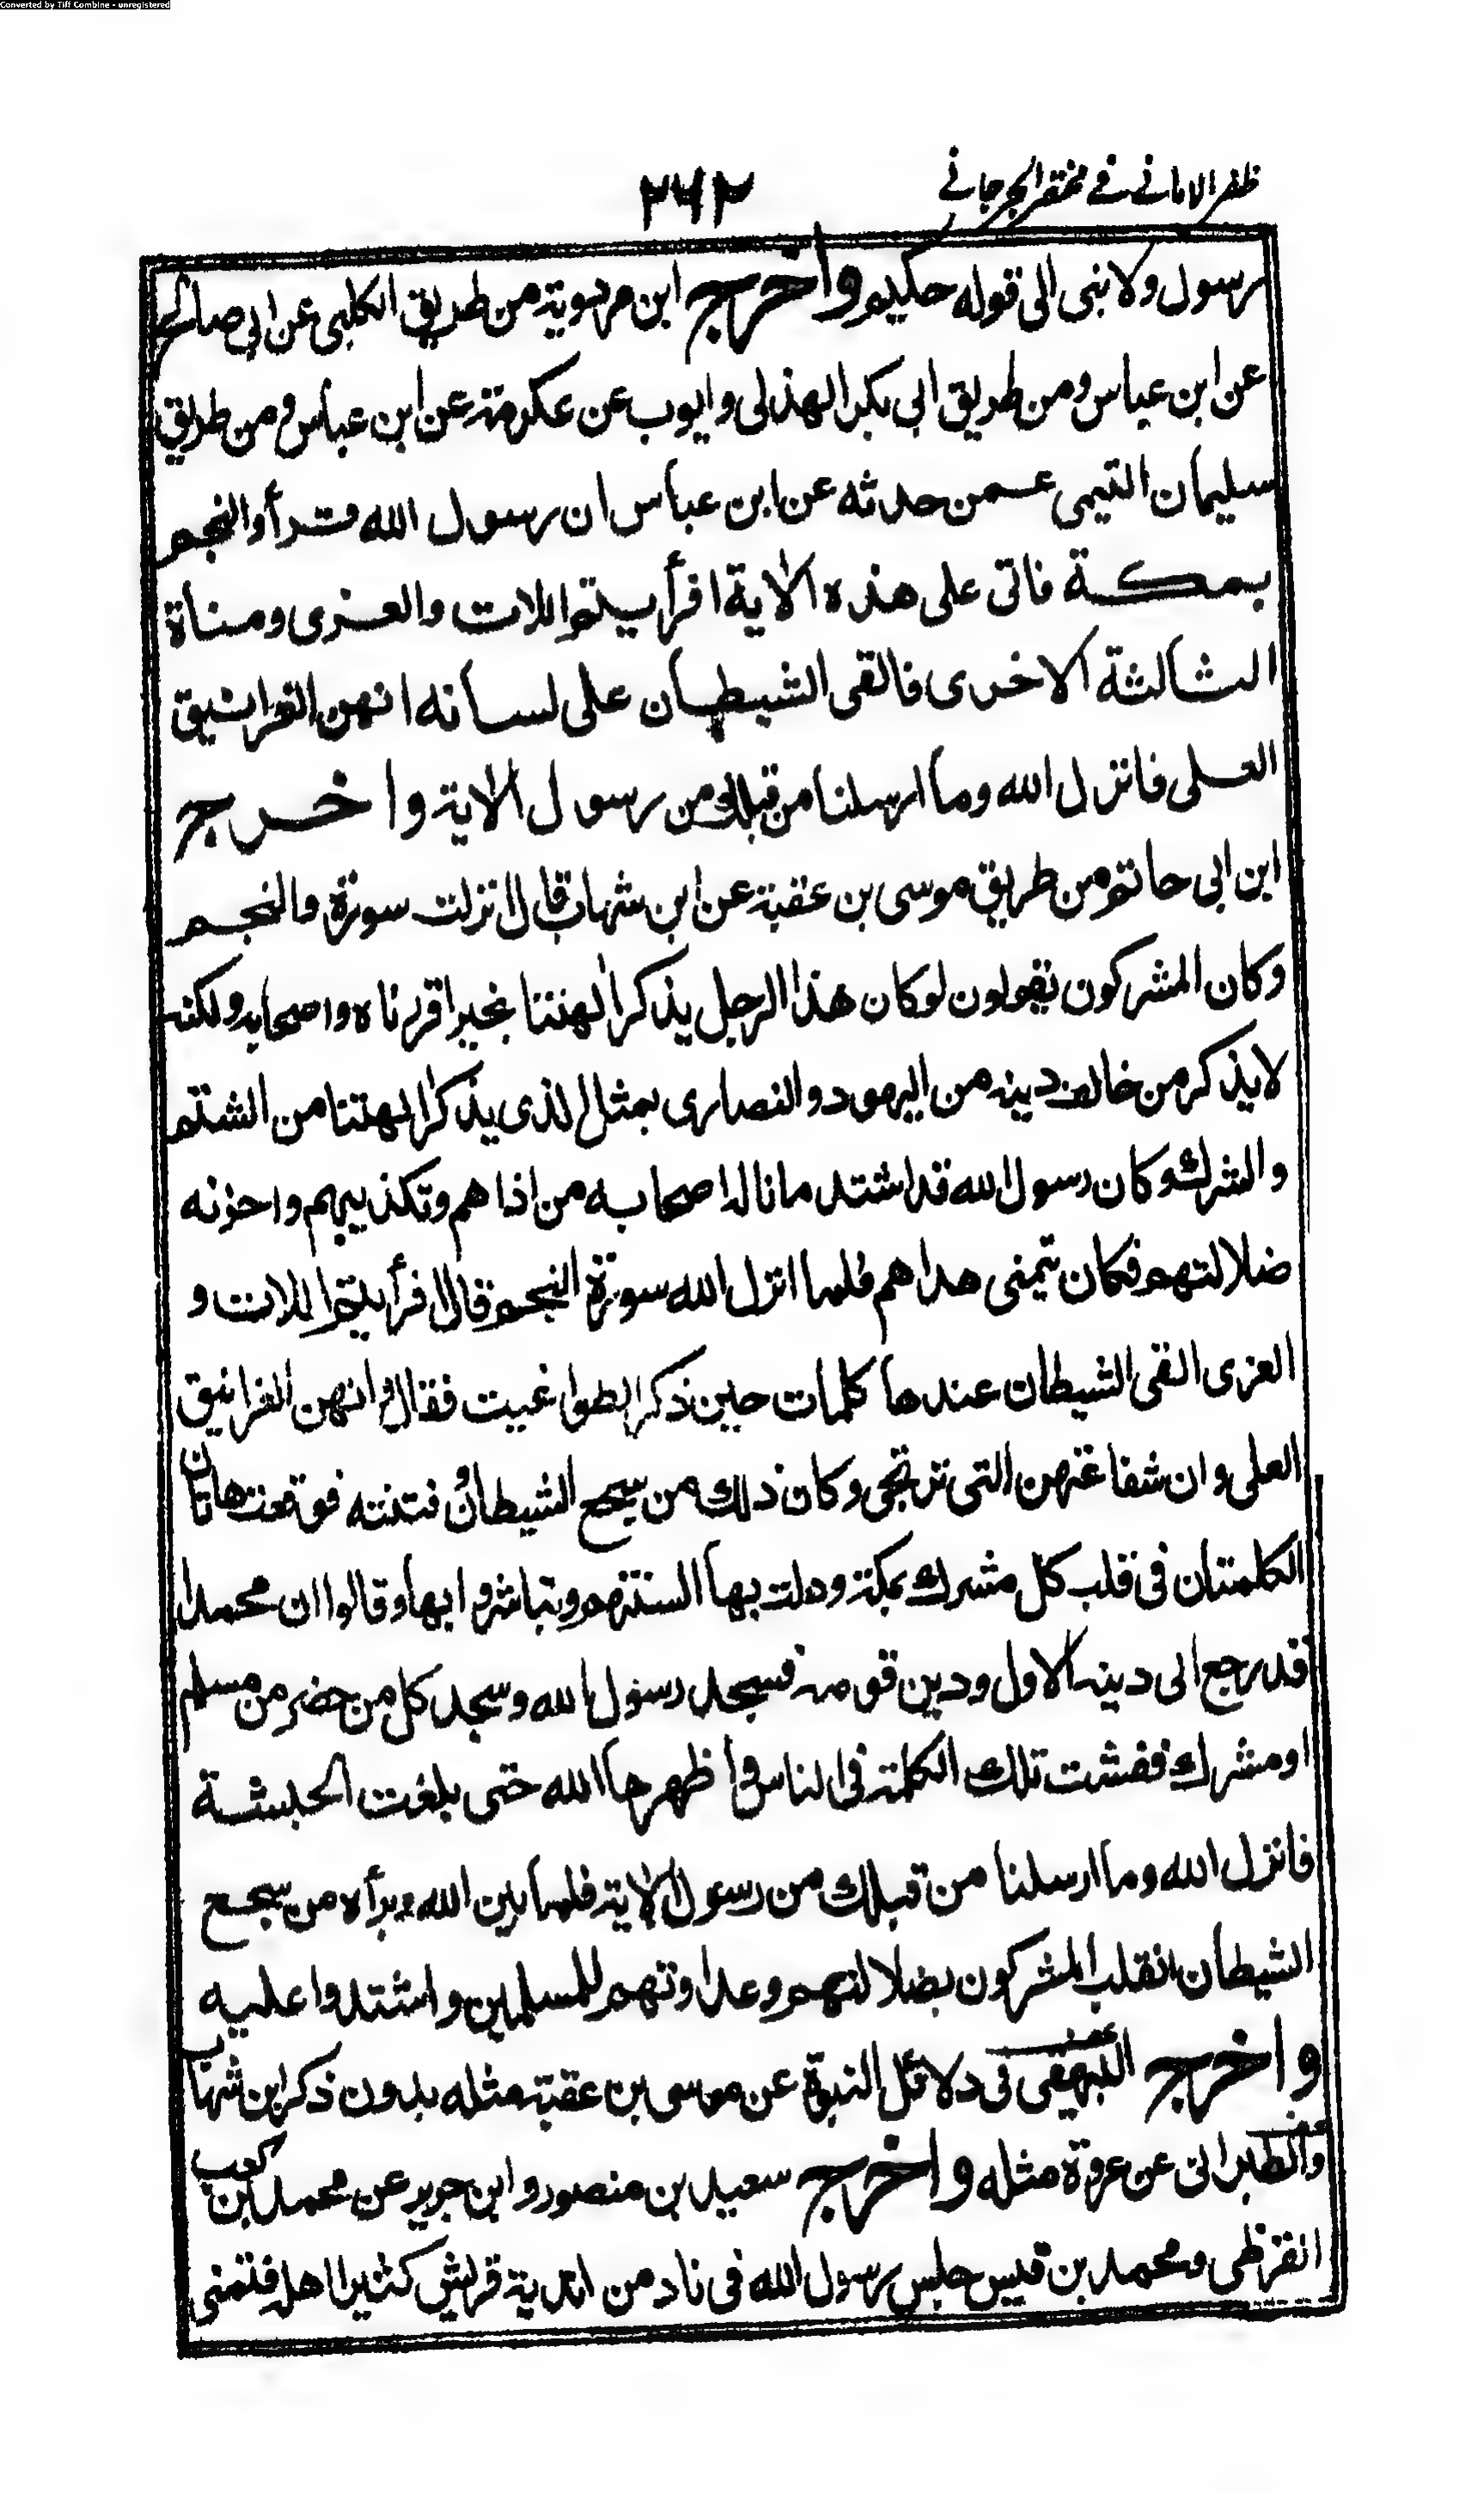 Converted by Tiff Combine - unregistered
ظفر الامانى فے مختصر الجرجانے
٢٦٢
رسول ولا نبى الى قوله حكيم واخرج ابن مردوية من طريق الكلبى عن ابى صالح
عن ابن عباس ومن طريق ابى بكر الهذلى وايوب عن عكرمة عن ابن عباس ومن طريق
سليمان التيمى عمن حدثه عن ابن عباس ان رسول الله قرأ والنجم
بمكة فاتى على هذه الاية افرأيتم اللات والعزى ومناة
الثالثة الاخرى فالقى الشيطان على لسانه انهن الغرانيق
العلى فانزل الله وما ارسلنا من قبلك من رسول الاية واخرج
ابن ابى حاتم من طريق موسى بن عقبة عن ابن شهاب قال لا نزلت سورة والنجم
وكان المشركون يقولون لو كان هذا الرجل يذكر الهتنا بخير اقررناه واصحابه ولكنه
لا يذكر من خالف دينه من اليهود والنصارى بمثل الذى يذكر الهتنا من الشتم
والشرك وكان رسول الله قد اشتد ما ناله اصحابه من اذاهم وتكذيبهم واحزنه
ضلالتهم فكان يتمنى هداهم فلما انزل الله سورة النجم قال افرأيتم اللات و
العزى القى الشيطان عندها كلمات حين ذكر الطواغيت فقال وانهن الغرانيق
العلى وان شفاعتهن التى ترتجى وكان ذلك من سجع الشيطان وفتنته فوقعت هاتان
الكلمتان فى قلب كل مشرك بمكة وذلت بها السنتهم وتباشروا بها وقالوا ان محمدا
قد رجع الى دينه الاول ودين قومه فسجد رسول الله وسجد كل من حضر من مسلم
او مشرك ففشت تلك الكلمة فى الناس واظهرها الله حتى بلغت الحبشة
فانزل الله وما ارسلنا من قبلك من رسول الاية فلما بين الله وبرأه من سجع
الشيطان انقلب المشركون بضلالتهم وعداوتهم للمسلمين واشتدوا عليه
واخرج البيهقى فى دلائل النبوة عن موسى بن عقبة مثله بدون ذكر ابن شهاب
والطبرانى عن عروة مثله واخرج سعيد بن منصور وابن جرير عن محمد ابن كعب
القرظى ومحمد بن قيس جلس رسول الله فى ناد من اندية قريش كثيرا اهله فتمنى